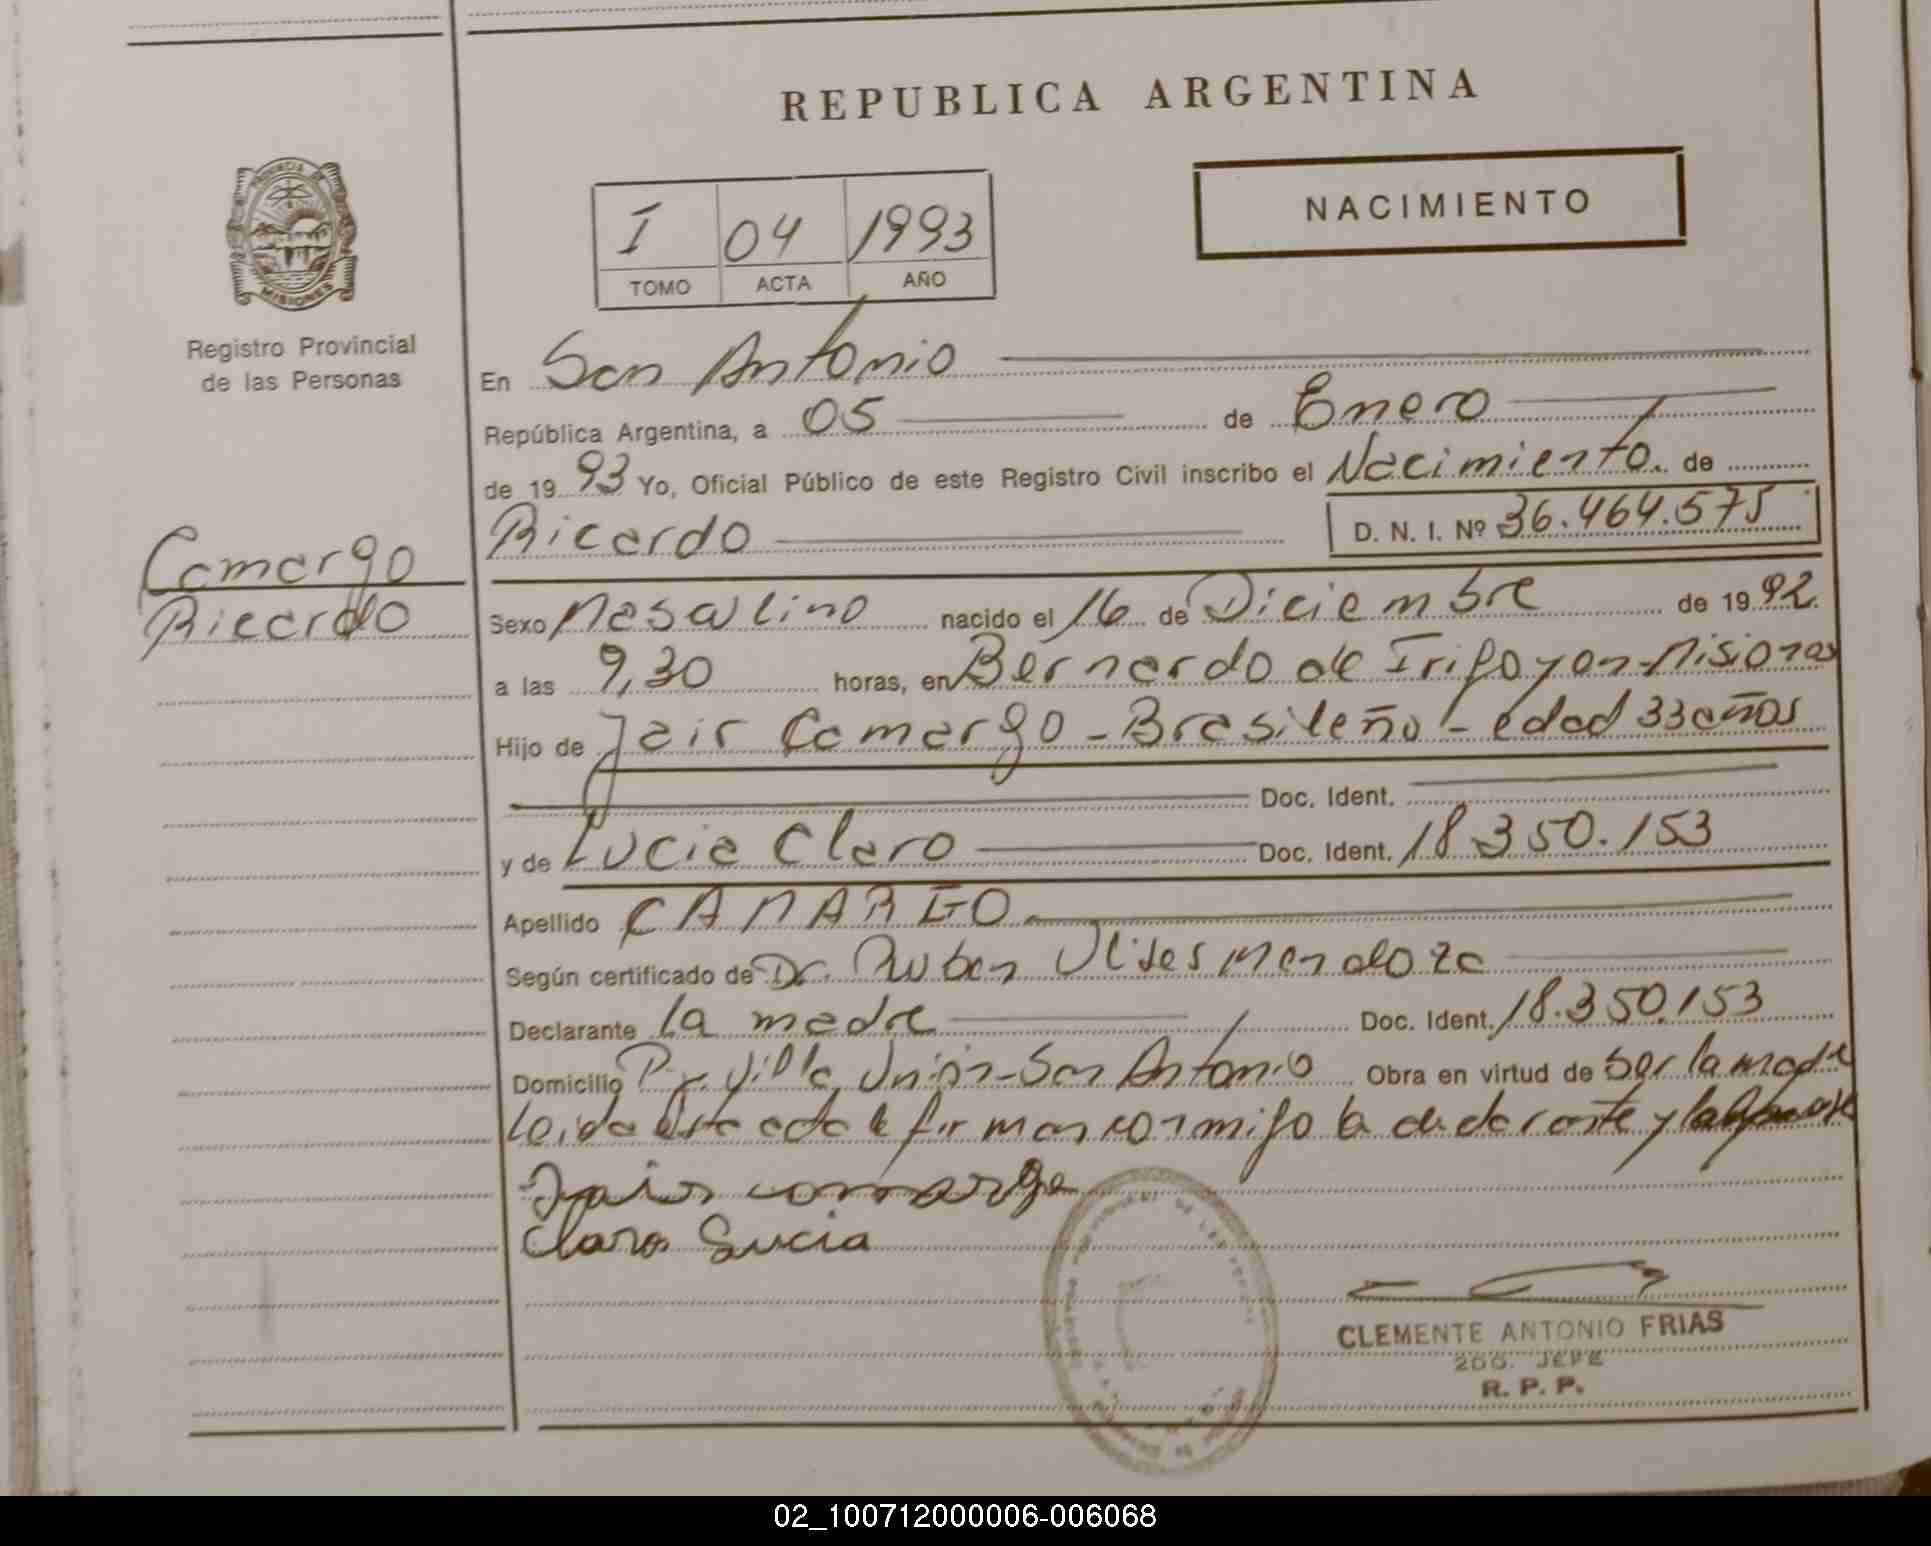 REPUBLICA ARGENTINA
PROVINCIA DE
MISIONES
Registro Provincial
de las Personas
NACIMIENTO
I 04 1993
TOMO ACTA AÑO
En San Antonio
República Argentina, a 05 de Enero
de 1993 Yo, Oficial Público de este Registro Civil inscribo el Nacimiento de
Ricardo D. N. I. Nº 36.464.575
Camargo
Ricardo
Sexo Masculino nacido el 16 de Diciembre de 1992
a las 9,30 horas, en Bernardo de Irigoyen-Misiones
Hijo de Jair Camargo - Brasileño - edad 33 años
Doc. Ident.
y de Lucia Claro Doc. Ident. 18.350.153
Apellido CAMARGO
Según certificado de Dr. Ruben Ulises Mendoza
Declarante la madre Doc. Ident. 18.350.153
Domicilio Villa Unión-San Antonio Obra en virtud de ser la madre
Leida esta acta la firman conmigo la declarante y
Jair camargo
Claro Lucia
CLEMENTE ANTONIO FRIAS
2DO. JEFE
R. P. P.
02_100712000006-006068